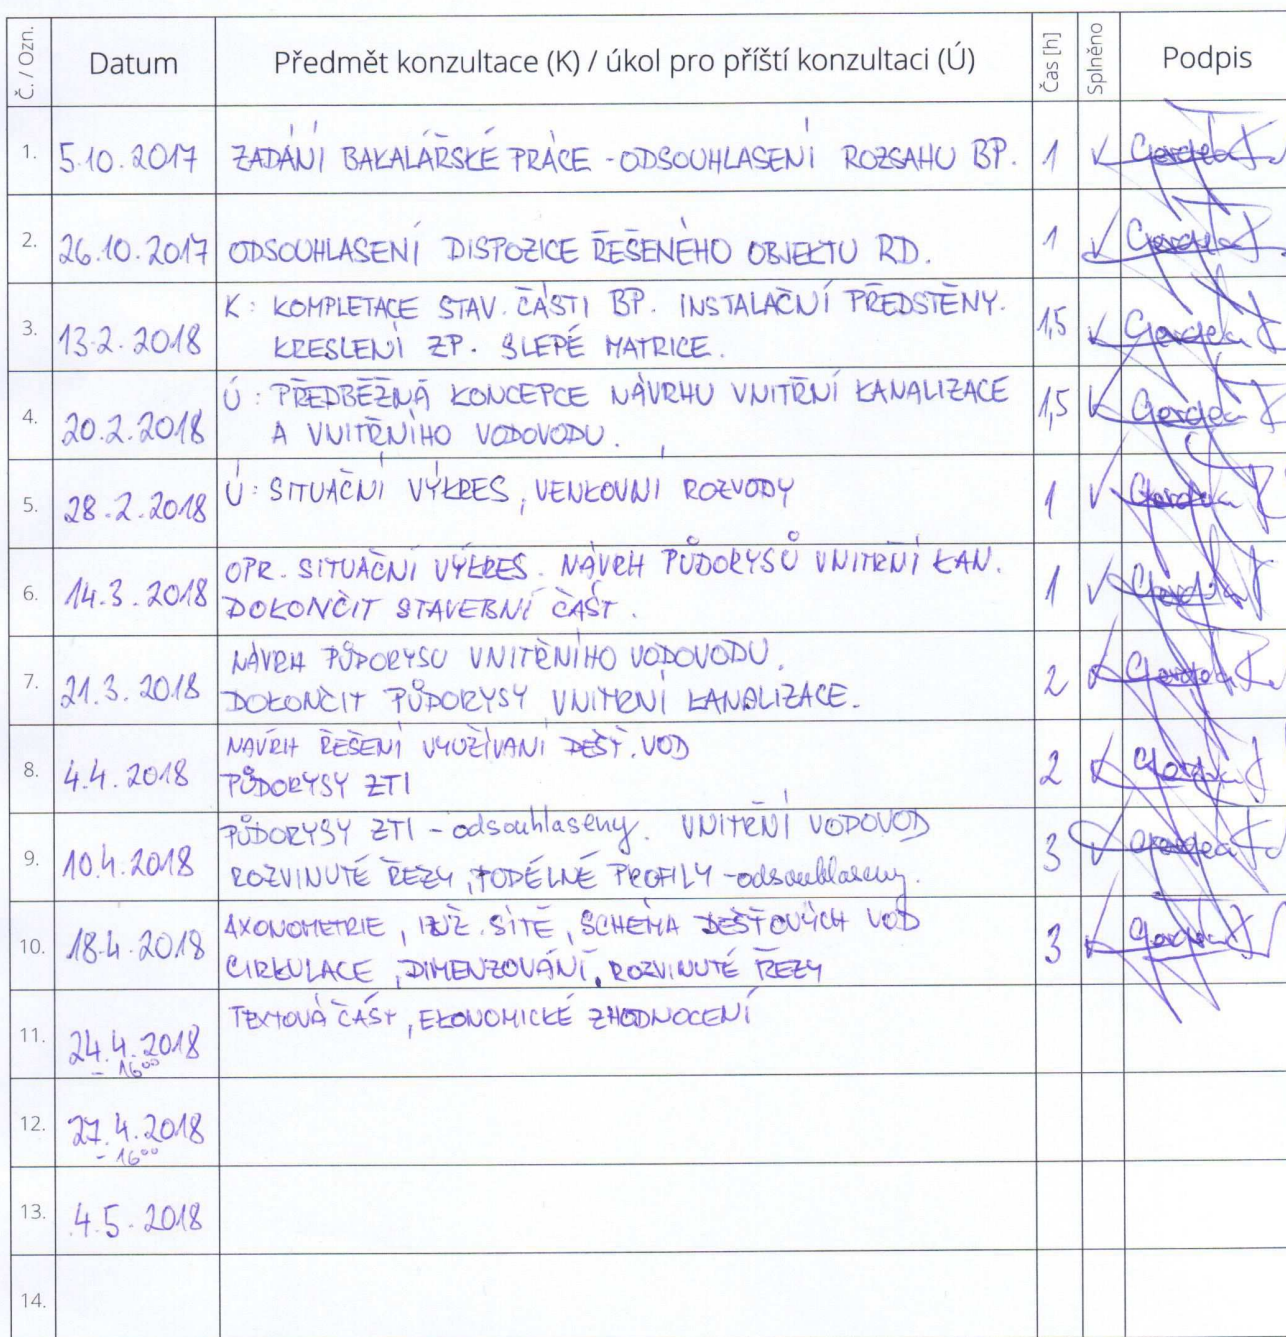 Č. / Ozn. Datum Předmět konzultace (K) / úkol pro příští konzultaci (Ú) Čas [h] Splněno Podpis
1. 5.10.2017 ZADÁNÍ BAKALÁŘSKÉ PRÁCE - ODSOUHLASENÍ ROZSAHU BP. 1
2. 26.10.2017 ODSOUHLASENÍ DISPOZICE ŘEŠENÉHO OBJEKTU RD. 1
K: KOMPLETACE STAV. ČÁSTI BP. INSTALAČNÍ PŘEDSTĚNY.
3. 13.2.2018 KRESLENÍ ZP. SLEPÉ MATRICE. 1,5
Ú: PŘEDBĚŽNÁ KONCEPCE NÁVRHU VNITŘNÍ KANALIZACE
4. 20.2.2018 A VNITŘNÍHO VODOVODU. 1,5
5. 28.2.2018 Ú: SITUAČNÍ VÝKRES, VENKOVNÍ ROZVODY 1
OPR. SITUAČNÍ VÝKRES. NÁVRH PŮDORYSŮ VNITŘNÍ KAN.
6. 14.3.2018 DOKONČIT STAVEBNÍ ČÁST. 1
NÁVRH PŮDORYSU VNITŘNÍHO VODOVODU.
7. 21.3.2018 DOKONČIT PŮDORYSY VNITŘNÍ KANALIZACE. 2
NÁVRH ŘEŠENÍ VYUŽÍVANÍ DEŠŤ. VOD
8. 4.4.2018 PŮDORYSY ZTI 2
PŮDORYSY ZTI - odsouhlaseny. VNITŘNÍ VODOVOD
9. 10.4.2018 ROZVINUTÉ ŘEZY, PODÉLNÉ PROFILY - odsouhlaseny. 3
AXONOMETRIE, INŽ. SÍTĚ, SCHEMA DEŠŤOVÝCH VOD
10. 18.4.2018 CIRKULACE, DIMENZOVÁNÍ, ROZVINUTÉ ŘEZY 3
TEXTOVÁ ČÁST, EKONOMICKÉ ZHODNOCENÍ
11. 24.4.2018
- 16⁰⁰
12. 27.4.2018
- 16⁰⁰
13. 4.5.2018
14.